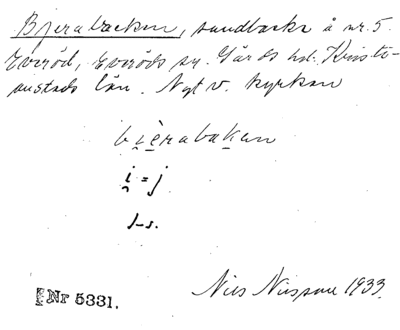 Bjerabacken, sandbacke å nr. 5
Everöd, Everöds sn. Gärds hd. Kristi-
anstads län. Nyt v. kyrkan
bi̯èrabakan
i̯ = j
f-s.
Nr 5331. Nils Nilsson 1933.